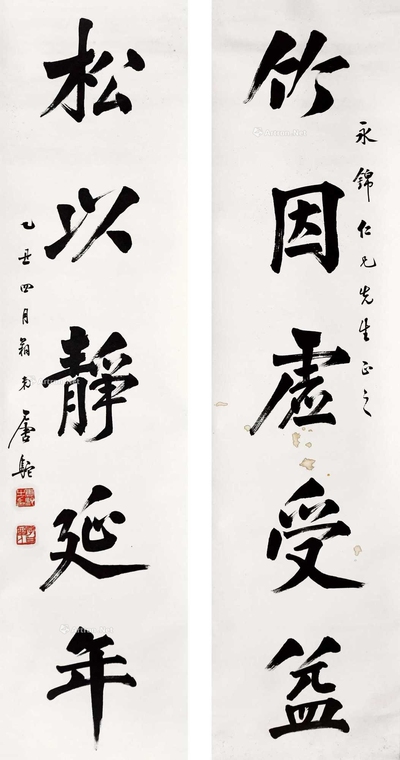 永錦仁兄先生正之
竹因虛受益
松以靜延年
乙丑四月弟唐駝
Artron.Net